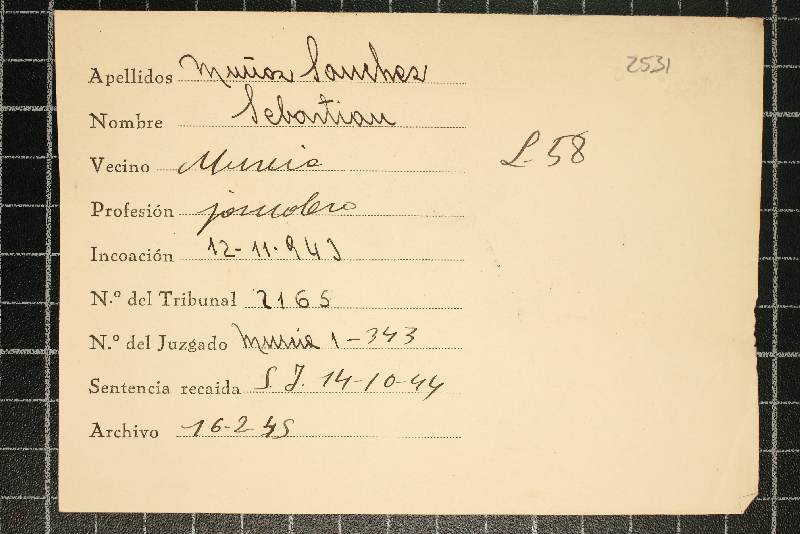 Apellidos Muñoz Sanchez
2531
Nombre Sebastian
Vecino Murcia
L-58
Profesión jornalero
Incoación 12-11-943
N.º del Tribunal 2165
N.º del Juzgado Murcia 1-343
Sentencia recaida S. J. 14-10-44
Archivo 16-2-45